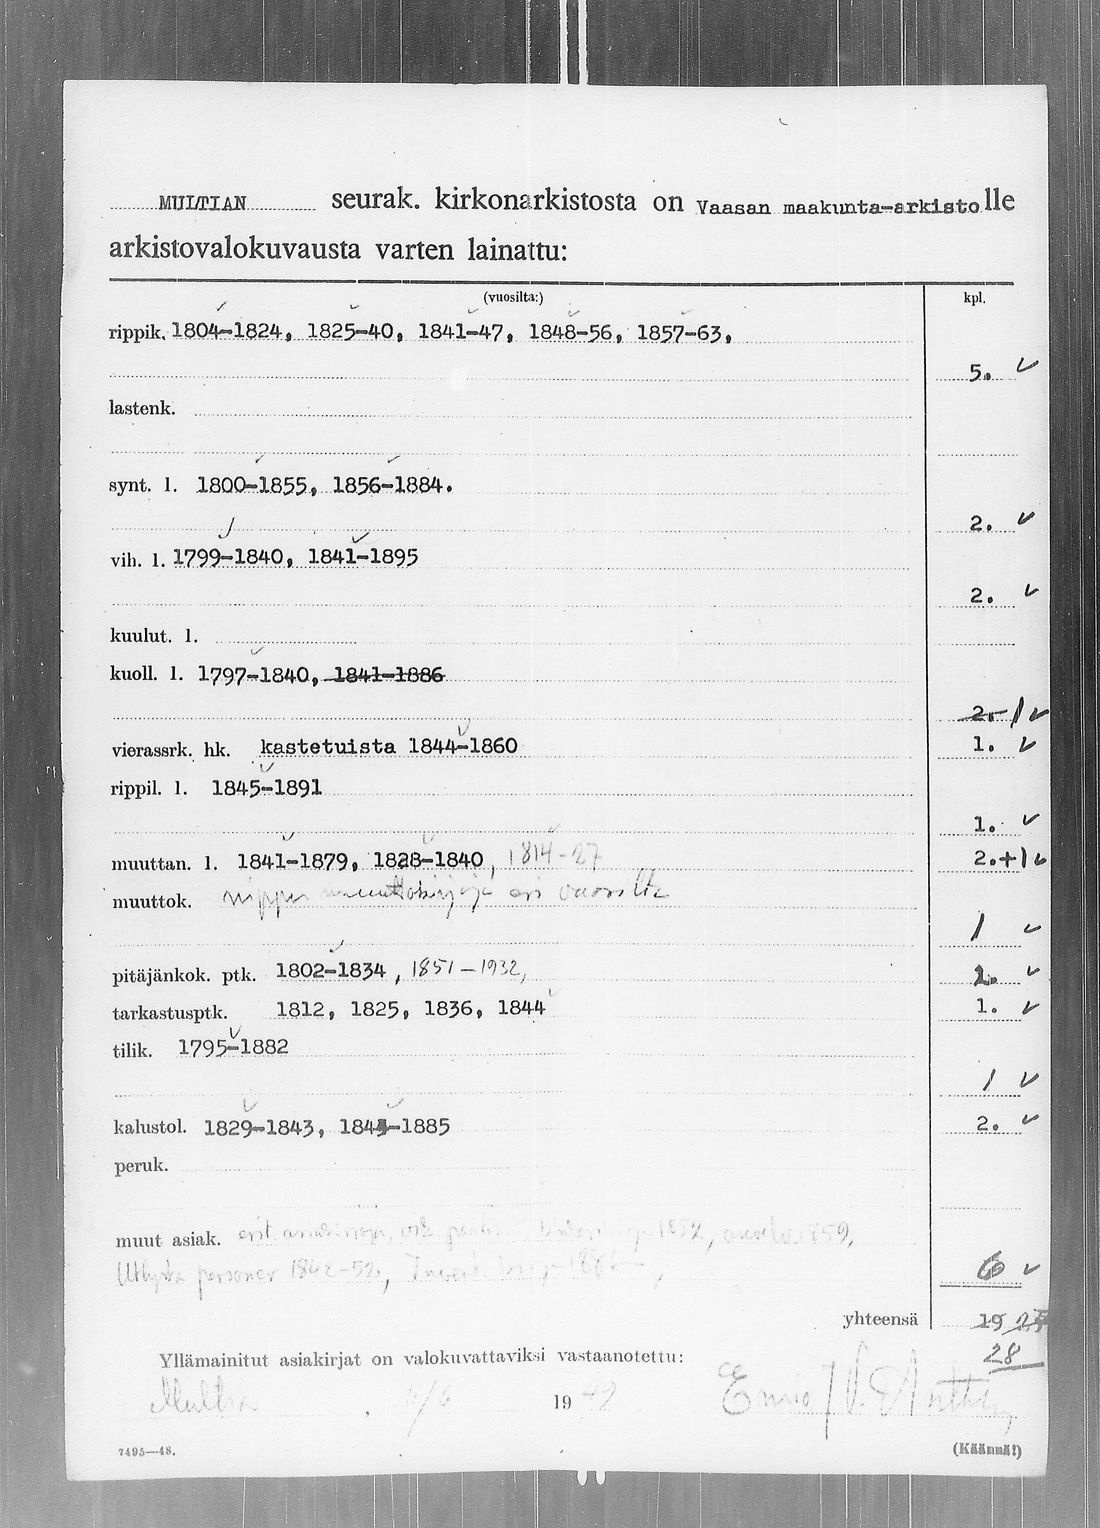 MULTIAN seurak. kirkonarkistosta on Vaasan maakunta-arkisto lle
arkistovalokuvausta varten lainattu:
(vuosilta:) kpl.
rippik. 1804-1824, 1825-40, 1841-47, 1848-56, 1857-63,
5. ✓
lastenk.
synt. l. 1800-1855, 1856-1884.
2. ✓
vih. l. 1799-1840, 1841-1895
2. ✓
kuulut. l.
kuoll. l. 1797-1840, 1841-1886
2. 1 ✓
vierassrk. hk. kastetuista 1844-1860 1. ✓
rippil. l. 1845-1891
1. ✓
muuttan. l. 1841-1879, 1828-1840, 1814-27 2.+1 ✓
muuttok. nippu muuttokirjoja eri vuosilta
1 ✓
pitäjänkok. ptk. 1802-1834, 1851-1932, ✓
tarkastusptk. 1812, 1825, 1836, 1844 1. ✓
tilik. 1795-1882
1 ✓
kalustol. 1829-1843, 1843-1885 2. ✓
peruk.
muut asiak. erit. asiakirjoja, 1852, 1859,
personer 1842-52,
6 ✓
yhteensä 19
28
Yllämainitut asiakirjat on valokuvattaviksi vastaanotettu:
Multia 11/6 19 49
7495—48. (Käännä!)